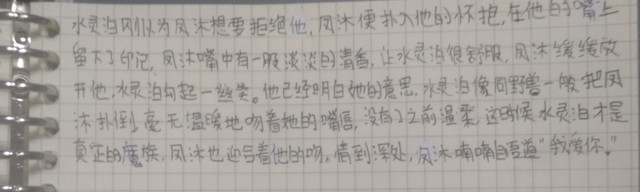 水灵泊以为凤沐想要拒绝他,凤沐便扑入他的怀抱,在他的嘴上
留下了印记,凤沐嘴中有一股淡淡的清香,让水灵泊很舒服,凤沐缓缓放
开他,水灵泊勾起一丝笑。他已经明白她的意思,水灵泊像同野兽一般把凤
沐扑倒,毫无温暖地吻着她的嘴唇,没有了之前温柔,这时候水灵泊才是
真正的魔族,凤沐也迎合着他的吻,情到深处,凤沐喃喃自语道“我爱你。”